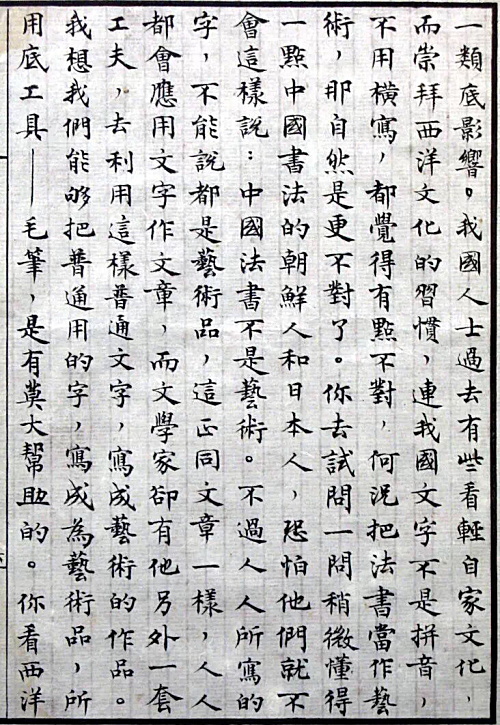 一類底影響。我國人士過去有些看輕自家文化，
而崇拜西洋文化的習慣，連我國文字不是拼音，
不用橫寫，都覺得有點不對，何況把法書當作藝
術，那自然是更不對了。你去試問一問稍微懂得
一點中國書法的朝鮮人和日本人，恐怕他們就不
會這樣說：中國法書不是藝術。不過人人所寫的
字，不能說都是藝術品，這正同文章一樣，人人
都會應用文字作文章，而文學家卻有他另外一套
工夫，去利用這樣普通文字，寫成藝術的作品。
我想我們能够把普通用的字，寫成為藝術品，所
用底工具——毛筆，是有莫大幫助的。你看西洋